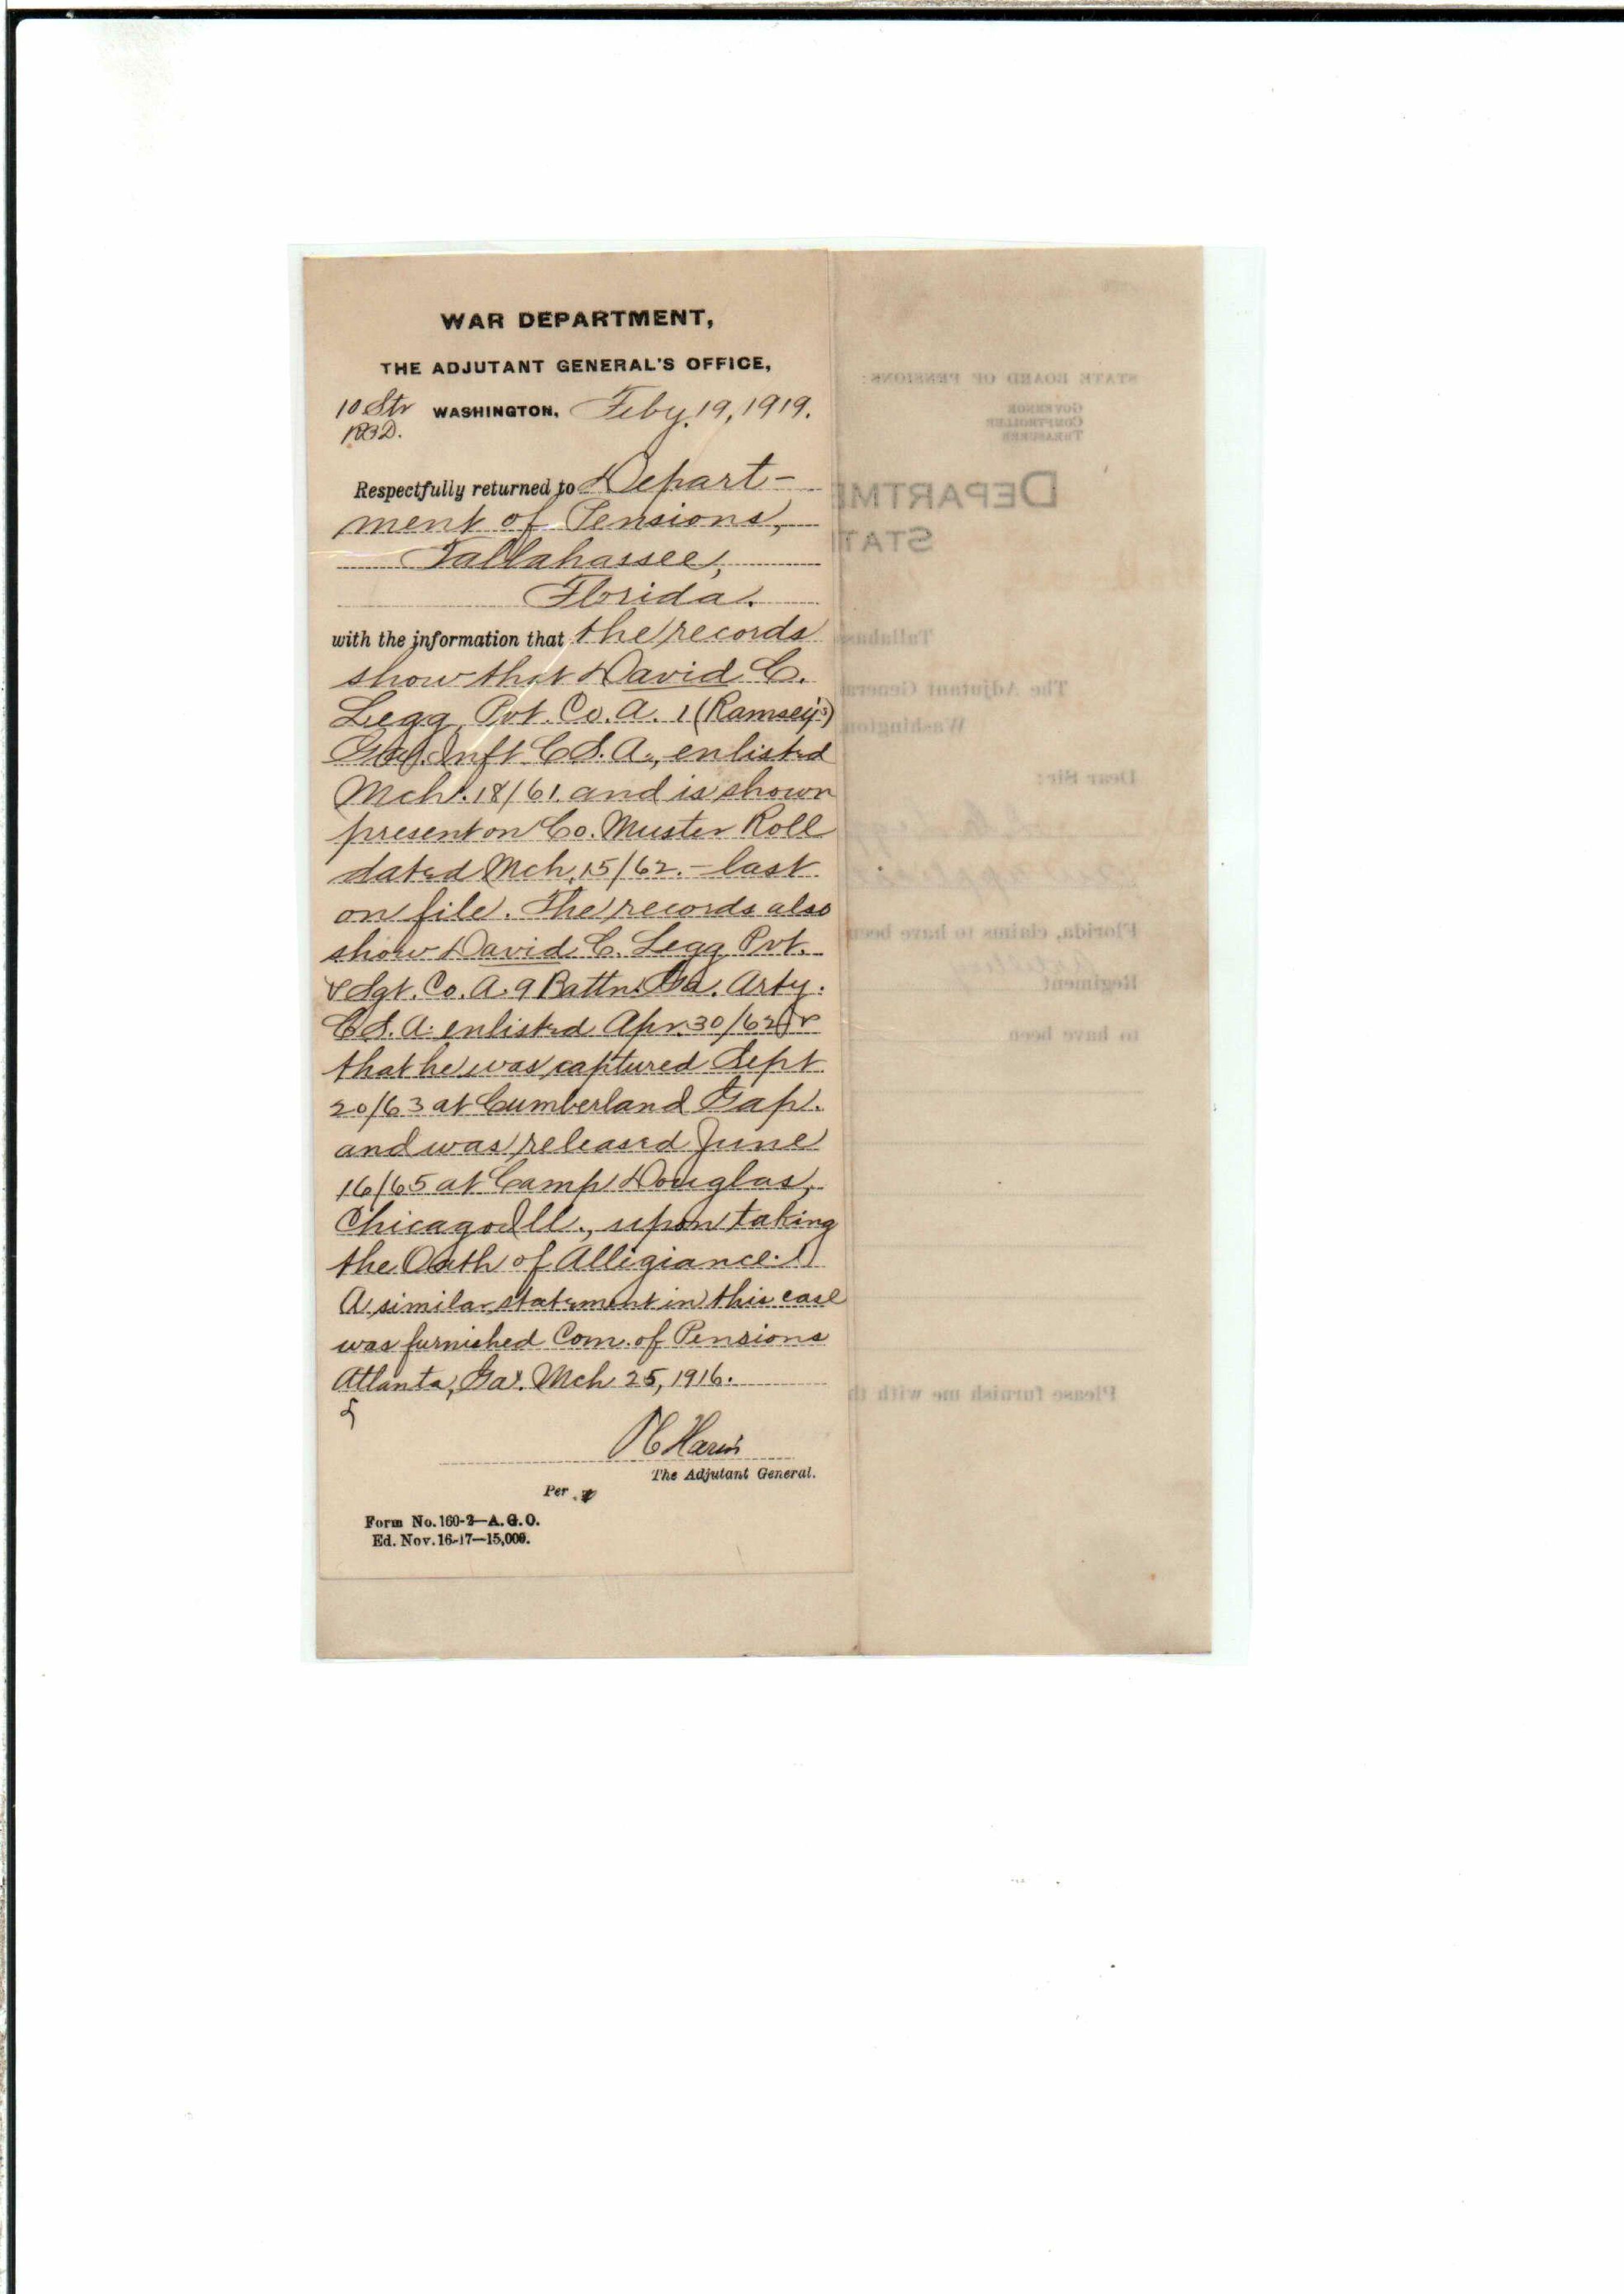 WAR DEPARTMENT,
THE ADJUTANT GENERAL'S OFFICE,
10 Str WASHINGTON, Feby. 19, 1919.
Respectfully returned to Depart-
ment of Pensions,
Tallahassee,
Florida.
with the information that the records
show that David C.
Legg Pvt. Co. A. 1 (Ramsey's)
Ga. Inft C.S.A., enlisted
Mch. 18/61. and is shown
present on Co. Muster Roll
dated Mch. 15/62. - last
on file. The records also
show David C. Legg Pvt.
& Sgt. Co. A. 9 Battn. Ga. Arty.
C.S.A. enlisted Apr. 30/62 &
that he was captured Sept
20/63 at Cumberland Gap.
and was released June
16/65 at Camp Douglas,
Chicago Ill., upon taking
the Oath of Allegiance.
A similar statement in this case
was furnished Com. of Pensions
Atlanta, Ga. Mch 25, 1916.
P C Harris
The Adjutant General.
Per
Form No. 160-2—A.G.O.
Ed. Nov. 16-17—15,000.
STATE BOARD OF PENSIONS:
GOVERNOR
COMPTROLLER
TREASURER
DEPARTME
STAT
Tallahas
The Adjutant General
Washington
Dear Sir:
Florida, claims to have been
Regiment
to have been
Please furnish me with th